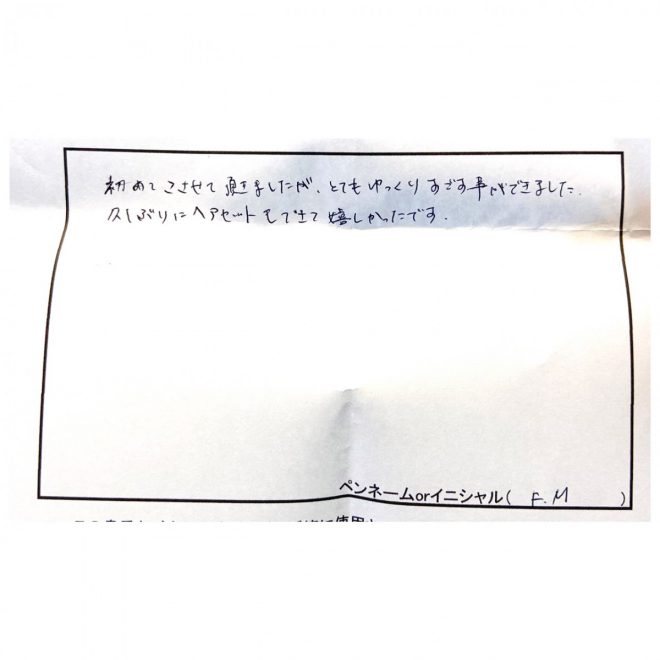 初めてこさせて頂きましたが、とてもゆっくりすごす事ができました。
久しぶりにヘアセットもできて嬉しかったです。
ペンネームorイニシャル( F.M )